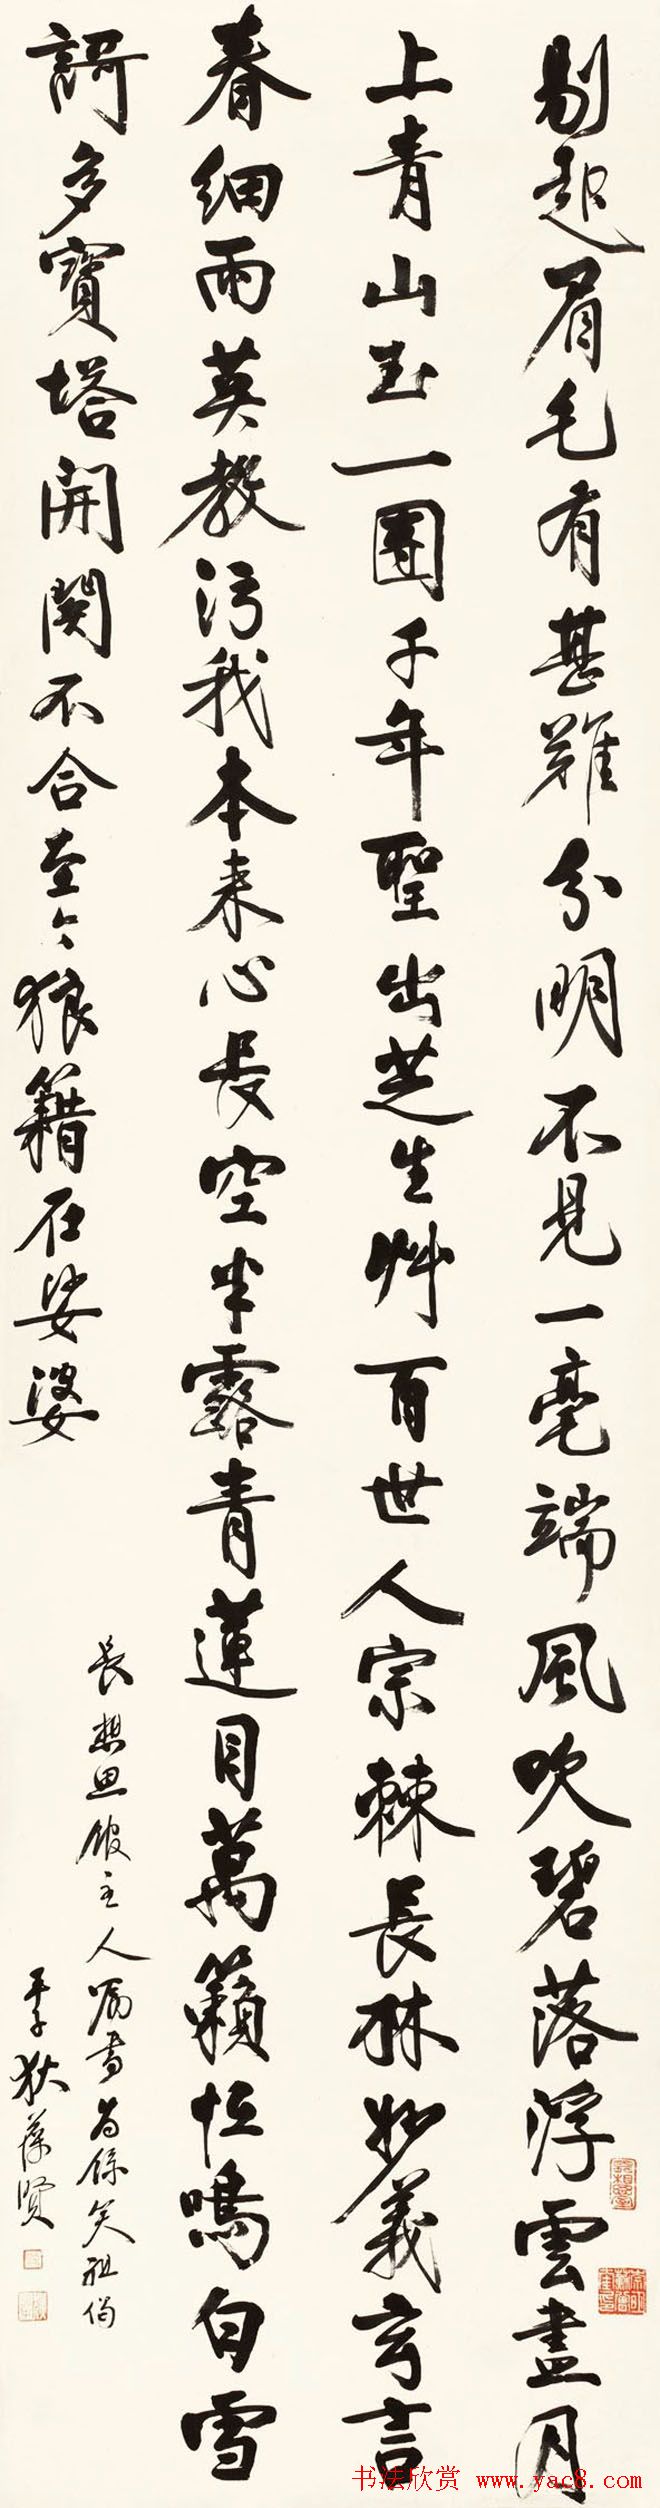 剔起眉毛有甚難分明不見一毫端風吹碧落浮雲盡月
上青山玉一團千年聖出芝生艸百世人宗棘長林妙義玄言
春細雨莫教污我本来心長空半露青蓮目萬籟恒鳴白雪
謌多寶塔開關不合至今狼籍在娑婆
長想思館主人屬書
平子狄葆賢
书法欣赏 www.yac8.com